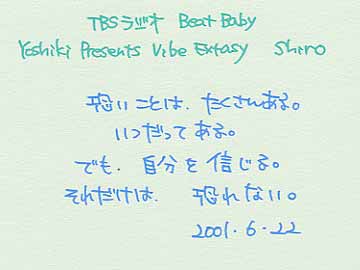 TBSラジオ Beat Baby
Yoshiki Presents Vibe Extasy Shiro
恐いことは、たくさんある。
いつだってある。
でも、自分を信じる。
それだけは、恐れない。
2001.6.22